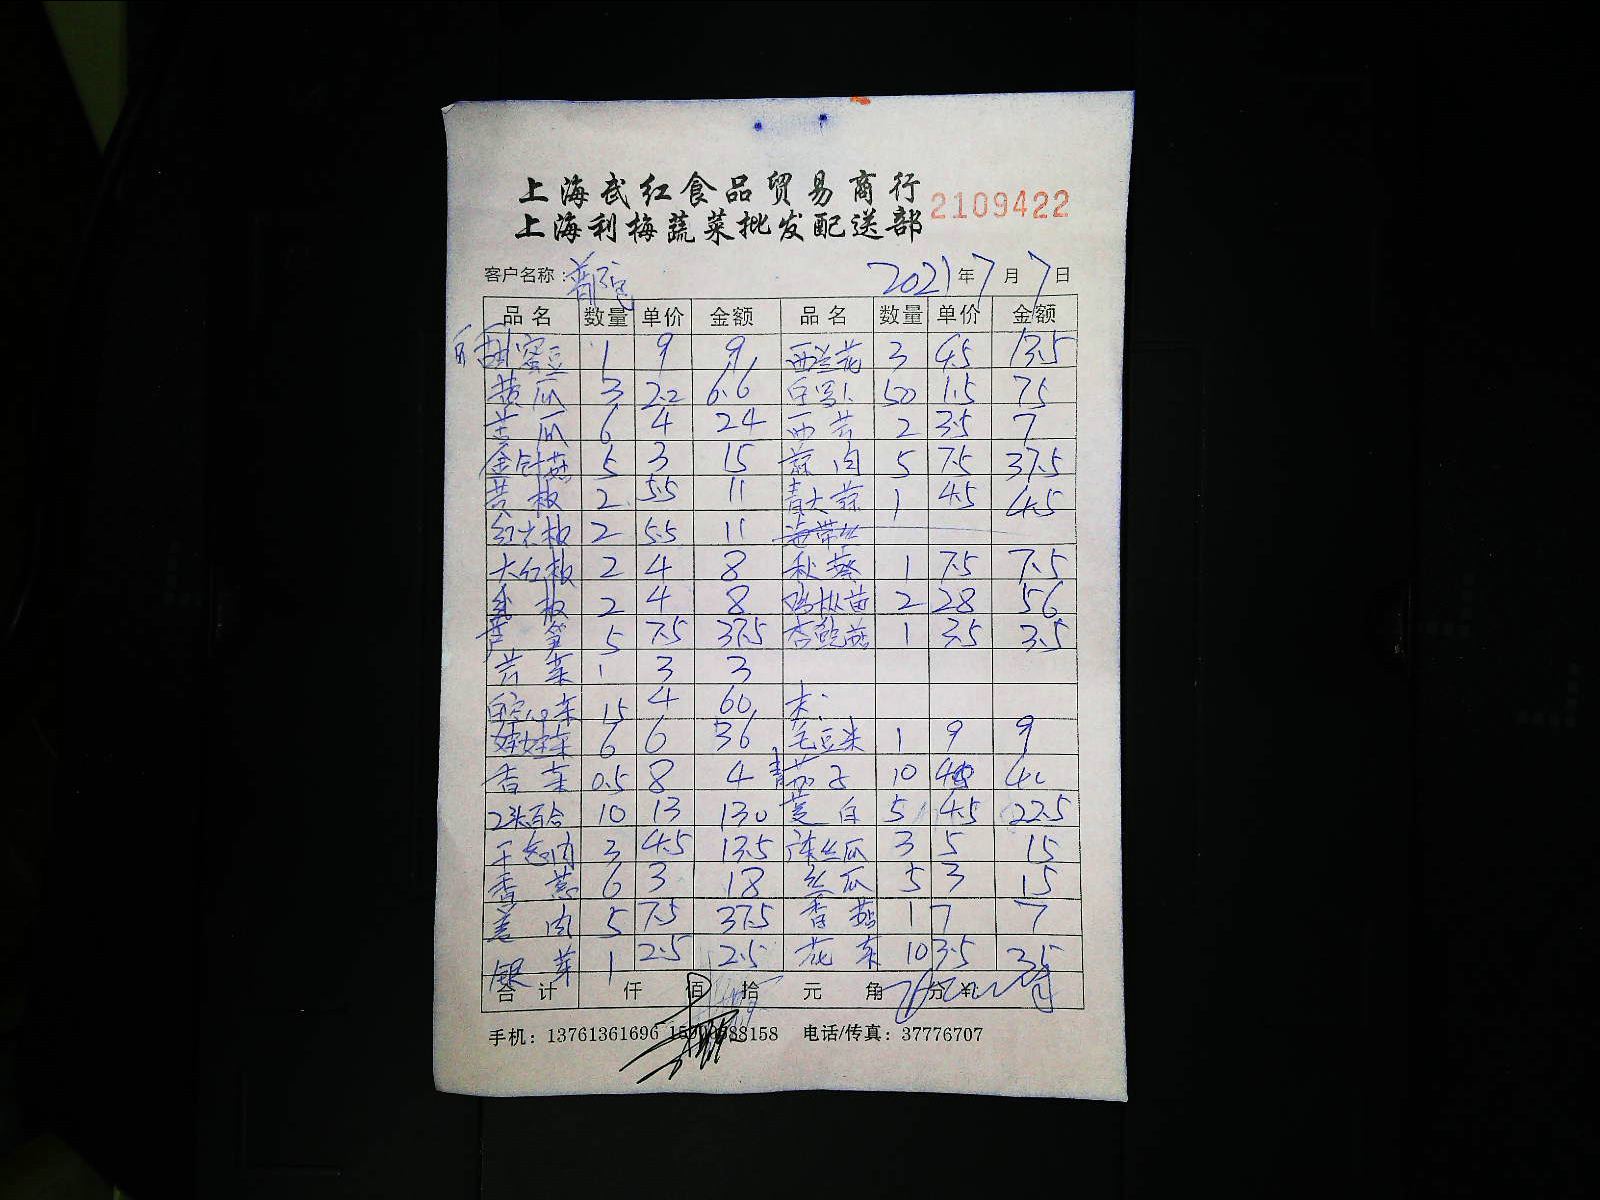 上海武红食品贸易商行
2109422
上海利梅蔬菜批发配送部
客户名称：
2021年7月7日
品名 数量 单价 金额 品名 数量 单价 金额
甜蜜豆 1 9 9 西兰花 3 4.5 13.5
黄瓜 3 2.2 6.6 50 1.5 75
苦瓜 6 4 24 西芹 2 3.5 7
金针菇 5 3 15 蒜肉 5 7.5 37.5
黄椒 2 5.5 11 青大蒜 1 4.5 4.5
红尖椒 2 5.5 11 海带丝
大红椒 2 4 8 秋葵 1 7.5 7.5
椒 2 4 8 鸡枞菌 2 28 56
芦笋 5 7.5 37.5 杏鲍菇 1 3.5 3.5
芹菜 1 3 3
白空心菜 15 4 60
娃娃菜 6 6 36 毛豆米 1 9 9
香菜 0.5 8 4 青茄子 10
2头百合 10 13 130 茭白 5 4.5 22.5
干葱肉 3 4.5 13.5 丝瓜 3 5 15
香葱 6 3 18 丝瓜 5 3 15
姜肉 5 7.5 37.5 香菇 1 7 7
银芽 1 2.5 2.5 花菜 10 3.5 35
合计 仟 佰 拾 元 角 分 ¥
手机：13761361696 电话/传真：37776707